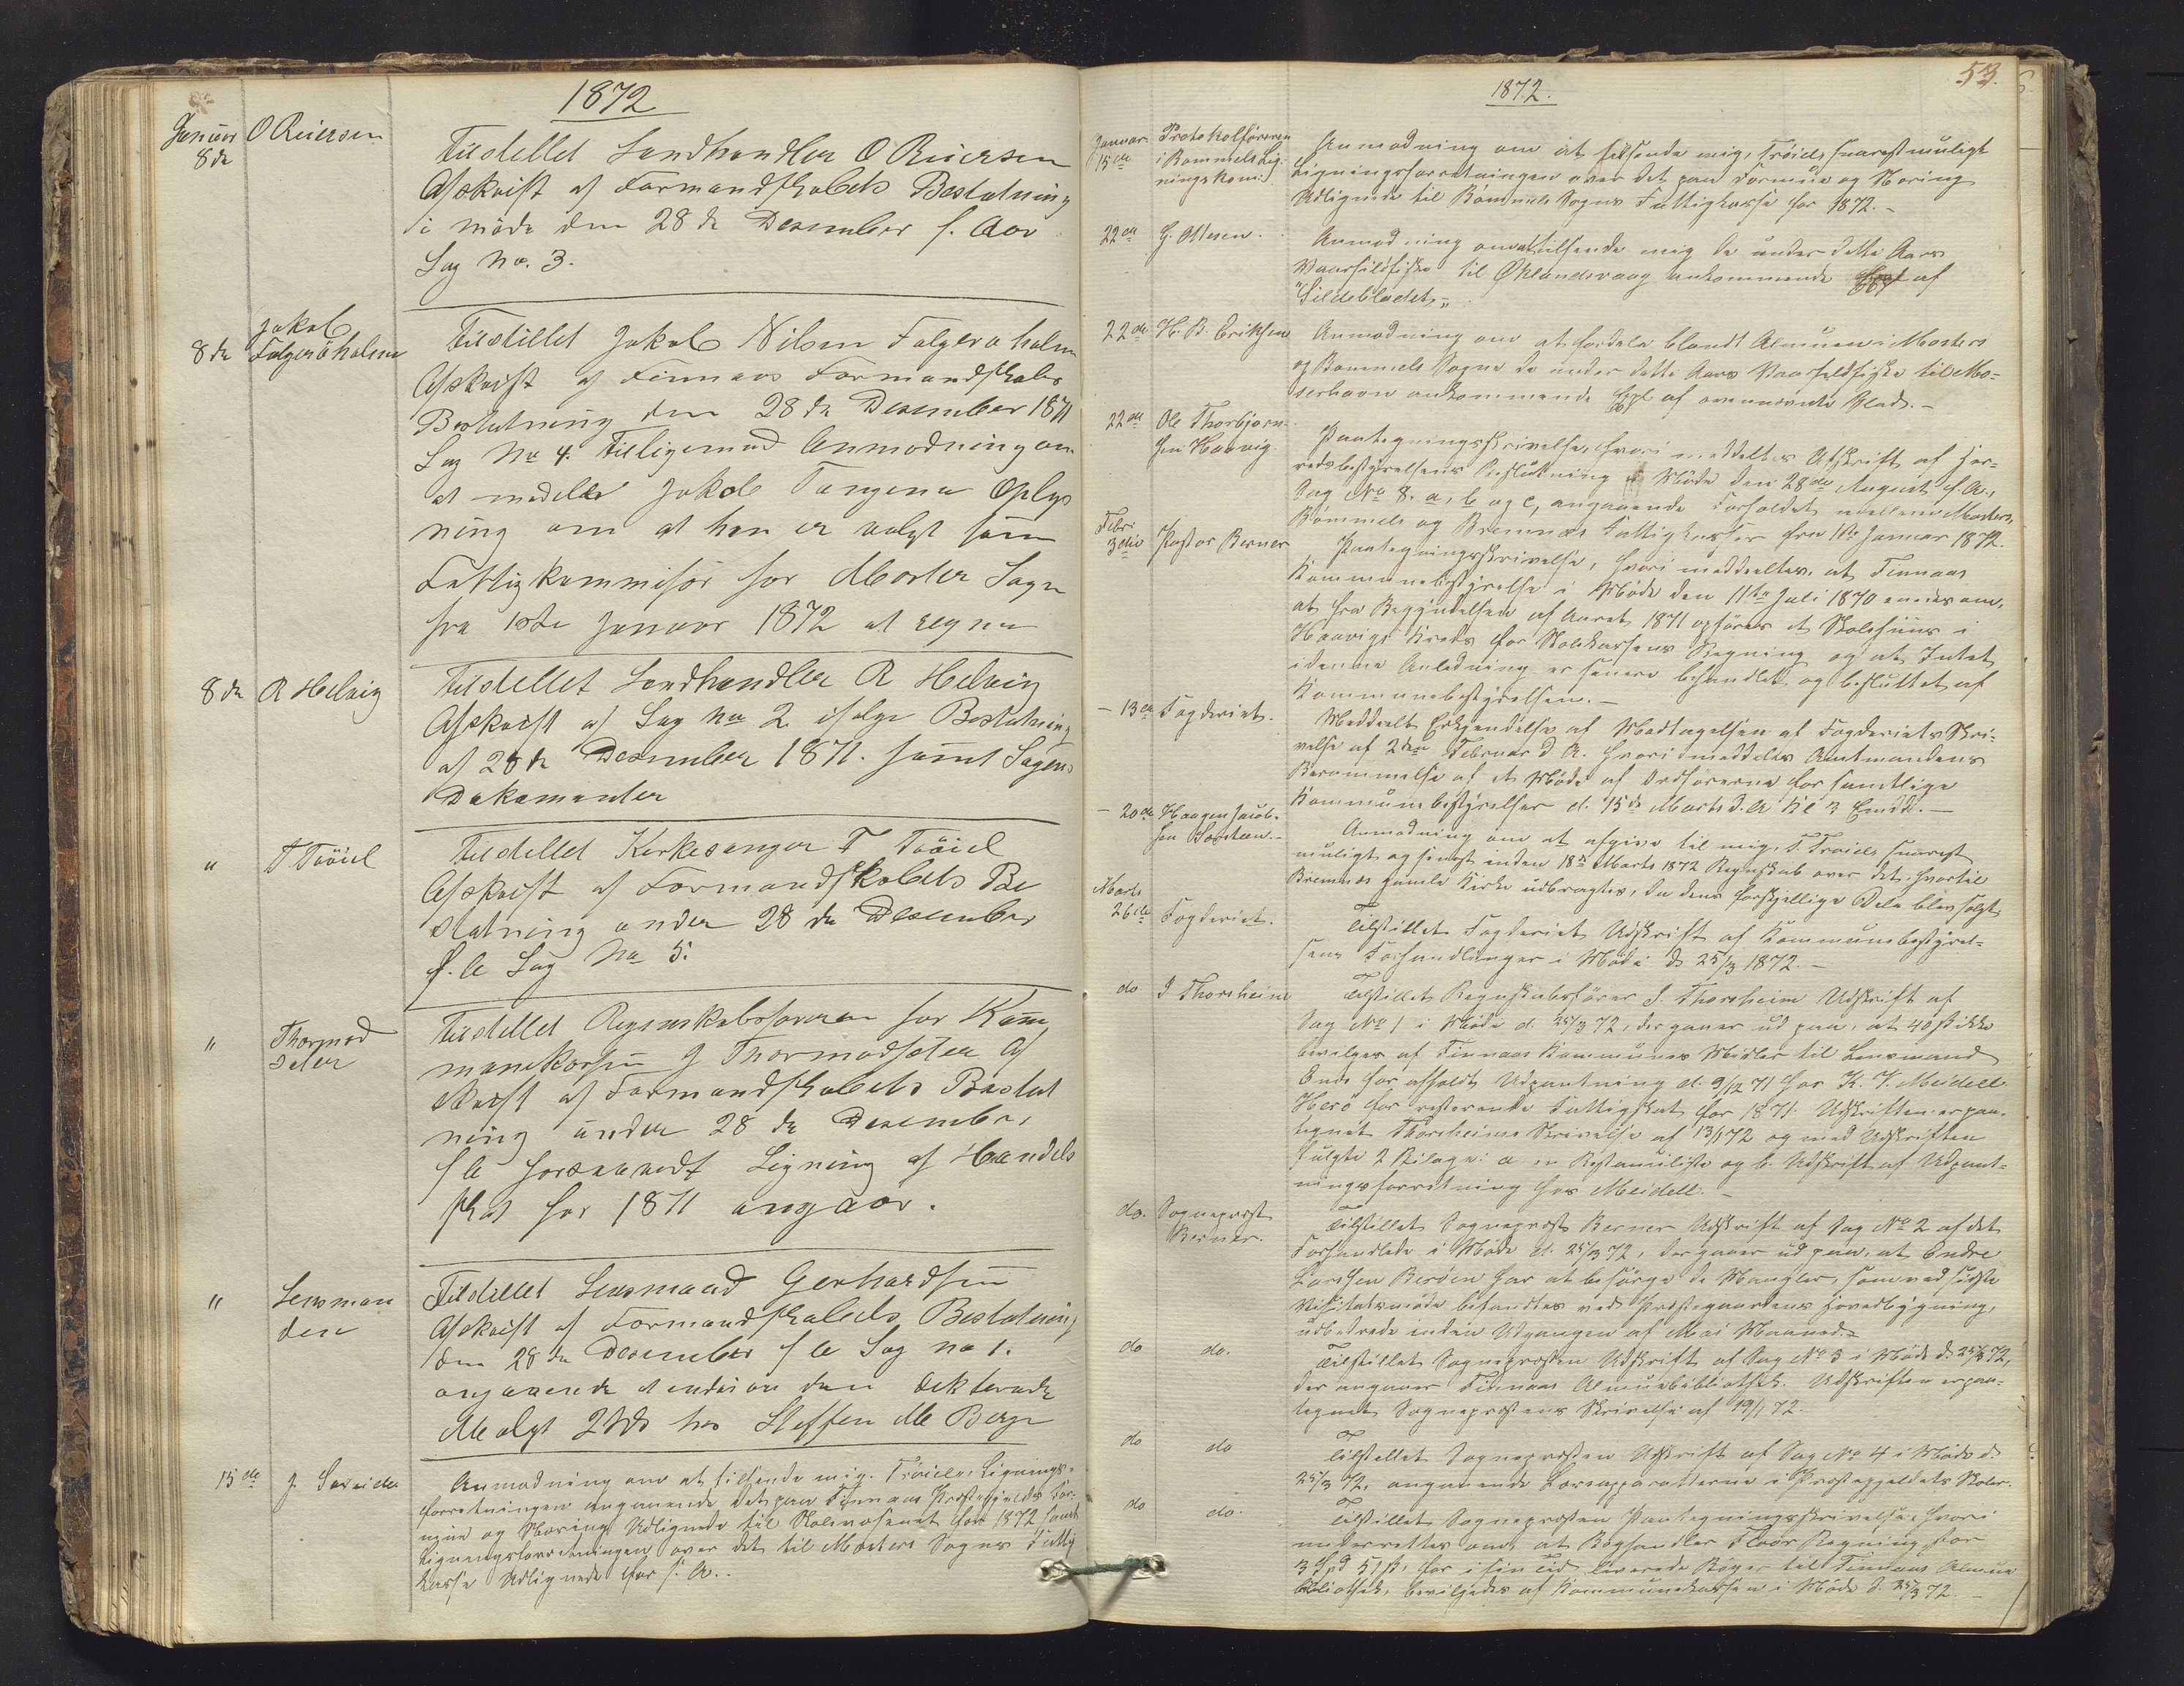 1872
Januar O Reiersen
8de
Tilstillet Landhandler O Reiersen
Afskrift af Formandskabets Beslutning
i møde den 28de Desember f. Aar
Sag No. 3.
Jakob
8de Folgerøholm
Tilstillet Jakob Nilsen Folgerøholm
Afskrift af Finnaas Formandskabs
Beslutning den 28de Desember 1871
Sag No 4. Tilligemed Anmodning om
at meddele Jakob Tangene Oplys
ning om at han er valgt som
Fattigkommisør for Moster Sogn
fra 1ste Januar 1872 at regne
8de R Helvig
Tilstillet Landhandler R Helvig
Afskrift af Sag No 2 ifølge Beslutning
af 28de Desember 1871. samt Sagens
Dokumenter
" T Tröiel
Tilstillet Kirkesanger T Tröiel
Afskrift af Formandskabets Be
slutning under 28de Desember
f. A Sag No 5.
" Thormod
sæter
Tilstillet Regnskabsføreren for Kom
munekassen J Thormodsæter Af
skrift af Formandskabets Beslut
ning under 28de Desember
f A forsaavidt Ligning af Handels
skat for 1871 angaar.
" Lensman
den
Tilstillet Lensmand Gerhardsen
Afskrift af Formandskabets Beslutning
den 28de Desember f A Sag No 1.
angaaende den dikterede
Mulgt 2 Spd hos Steffen M Berge
15de J. Særsider
Anmodning om at tilsende mig. Tröiel, Lignings-
forretningen angaaende det paa Finnaas Præstegjelds For-
mue og Næring Udlignede til Skolevæsenet for 1872 samt
Ligningsforretningen over det til Mosters Sogns Fattig
kasse Udlignede for f. A.
53.
1872.
Januar Protokolføreren
15de i Bømmels Lig-
ningskomi.
Anmodning om at tilsende mig, Tröiel, snarest muligt
Ligningsforretningen over det paa Formue og Næring
Udlignede til Bømmels Sogns Fattigkasse for 1872. -
22de G. Ottesen.
Anmodning om at tilsende mig de under dette Aars
Vaarsildfiske til Øklandsvaag ankommende Expl af
"Sildebladet".
22de H. B. Eriksen
Anmodning om at fordele blandt Almuen i Mosters
og Bømmels Sogne de under dette Aars Vaarsildfiske til Mo-
sterhavn ankommende Expl af ovennævnte Blad. -
22de Ole Thorbjørn-
sen Haavig.
Paategningsskrivelse, hvori meddeltes Afskrift af Her-
redsbestyrelsens Beslutning i Møde den 28de August f. A.,
Sag No 8. a, b og c, angaaende Forholdet mellem Mosters,
Bømmels og Bremnes Fattigkasser fra 1ste Januar 1872.
Febr.
3die Pastor Berner
Paategningsskrivelse, hvori meddeeltes, at Finnaas
Kommunebestyrelse i Møde den 11te Juli 1870 enedes om,
at fra Begyndelsen af Aaret 1871 opføres et Skolehuus i
Haavigs Kreds for Skolekassens Regning og at Intet
i denne Anledning er senere behandlet og besluttet af
Kommunebestyrelsen. -
- 13de Fogderiet.
Meddeelt Erkjendelse af Modtagelsen af Fogderiets Skri-
velse af 2den Februar d. A. hvori meddeles Amtmandens
Berammelse af et Møde af Ordførerne for samtlige
Kommunebestyrelser d. 15de Marts d. A Kl 3 Emdd. -
- 20de Haagen Jacob-
sen Sortæen.-
Anmodning om at afgive til mig, T. Tröiel, snarest
muligt og senest inden 18de Marts 1872 Regnskab over det, hvortil
Bremnes gamle Kirke udbragtes, da dens forskjellige Dele blev solgt.
Marts
26de Fogderiet.
Tilstillet Fogderiet Udskrift af Kommunebestyrel-
sens Forhandlinger i Møde d 25/3 1872. -
do J Thorsheim
Tilstillet Regnskabsfører J. Thorsheim Udskrift af
Sag No 1 i Møde d. 25/3 72, der gaaer ud paa, at 40 s ikke
bevilges af Finnaas Kommunes Midler til Lensmand
Ende for afholdt Udpantning d. 9/12 71 hos K. J. Meidell
Herø for resterende Fattigskat for 1871. Udskriften er paa-
tegnet Thorsheims Skrivelse af 13/1 72 og med Udskriften
fulgte 2 Bilage: a en Restanceliste og b. Udskrift af Udpant-
ningsforretning hos Meidell. -
do. Sognepræst
Berner.
Tilstillet Sognepræst Berner Udskrift af Sag No 2 af det
Forhandlede i Møde d. 25/3 72, der gaaer ud paa, at Endre
Larssen Berøen har at besørge de Mangler, som ved sidste
Visitatsmøde befandtes ved Præstegaardens Hovedbygning,
udbedrede inden Udgangen af Mai Maaned.-
do do.
Tilstillet Sognepræsten Udskrift af Sag No 3 i Møde d. 25/3 72,
der angaaer Finnaas Almuebibliothek. Udskriften er paa-
tegnet Sognepræstens Skrivelse af 19/1 72.
do do
Tilstillet Sognepræsten Udskrift af Sag No 4 i Møde d.
25/3 72, angaaende Læreapparatterne i Præstegjeldets Skoler.
do do.
Tilstillet Sognepræsten Paategningsskrivelse, hvori
underrettes om, at Boghandler Floor Regning for
3 Spd 51 s, for i sin Tid leverede Bøger til Finnaas Almue
bibliothek, bevilgedes af Kommunekassen i Møde d. 25/3 72. -